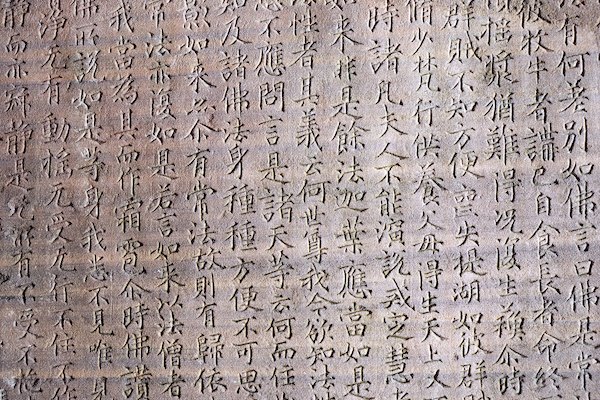 有何差別如佛言曰佛是常
彼牧牛者已自食長者命終
漿猶難得况復生穌尒時
群賊不知方便失提湖如彼群
脩少梵行供養父母得生天上
時諸凡夫人不能演說戒定慧
來非是餘法迦葉應當如是
性者其義云何世尊我今欲知法
不應問言是諸天等云何而住
如及諸佛法身種種方便不可思
如來亦尒有常法故則有歸依
常法亦復如是若言如來以法僧者
我當為其而作霜雹尒時佛讚
佛所說如是等身我悉不見唯見
淨无有動摇无受无行不住不作
靜而亦靜是有不受不